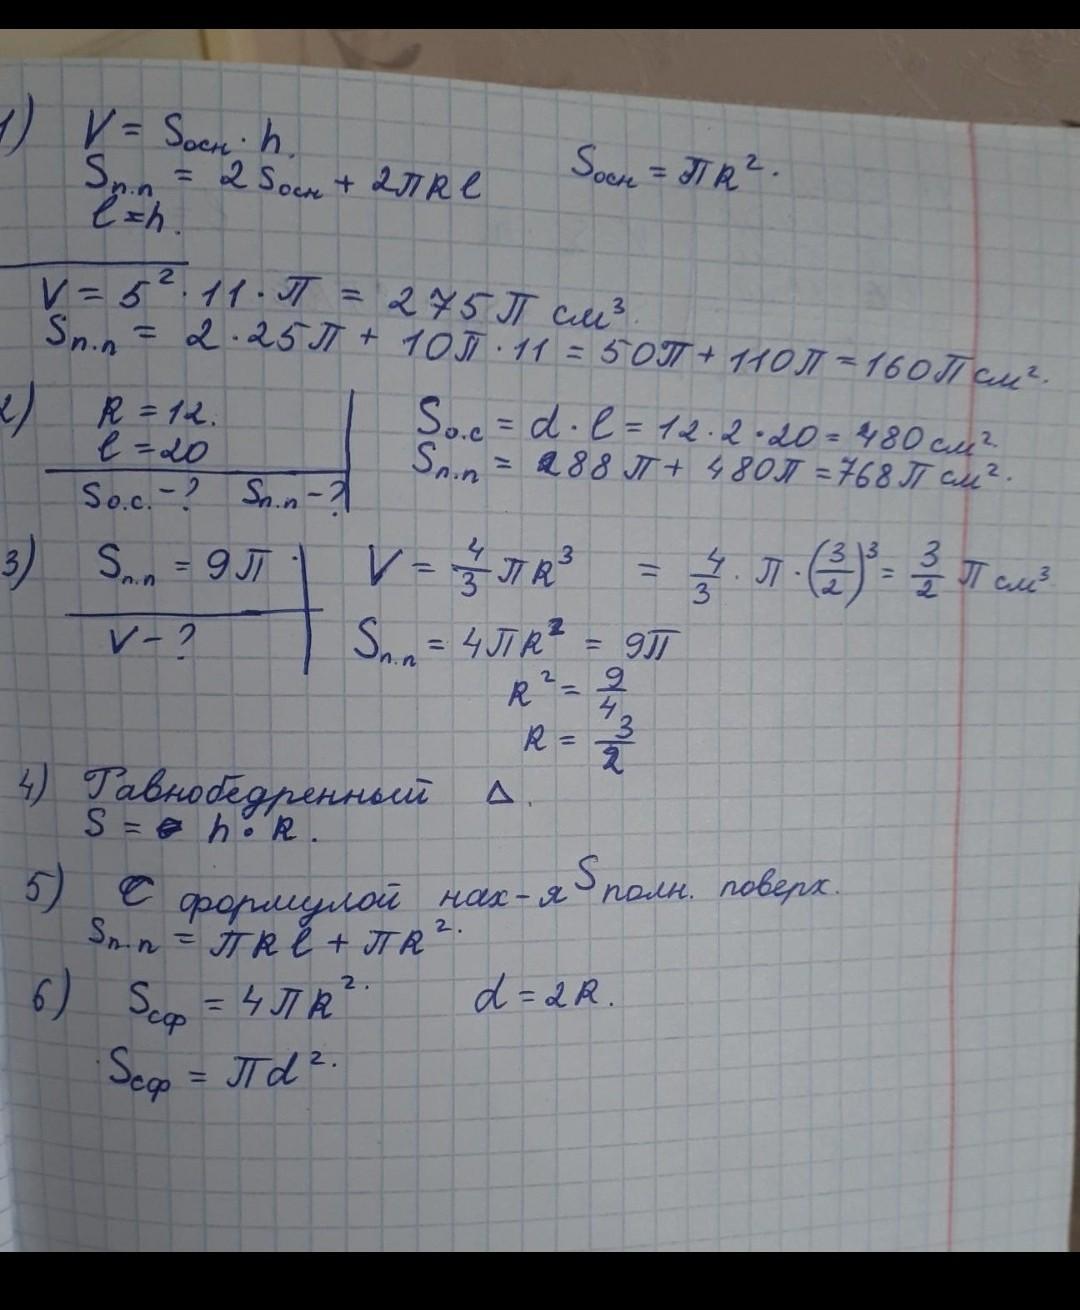 1) V = Sосн · h.
Sп.п = 2Sосн + 2πRl Sосн = πR².
l = h.
V = 5² · 11 · π = 275π см³.
Sп.п = 2 · 25π + 10π · 11 = 50π + 110π = 160π см².
2) R = 12. Sо.с = d · l = 12 · 2 · 20 = 480 см².
l = 20 Sп.п = 288π + 480π = 768π см².
Sо.с. – ? Sп.п – ?
3) Sп.п = 9π V = 4/3 πR³ = 4/3 · π · (3/2)³ = 3/2 π см³
V – ? Sп.п = 4πR² = 9π
R² = 9/4
R = 3/2
4) Равнобедренный Δ.
S = h · R.
5) С формулой нах-я Sполн. поверх.
Sп.п = πRl + πR².
6) Sсф = 4πR². d = 2R.
Sсф = πd².